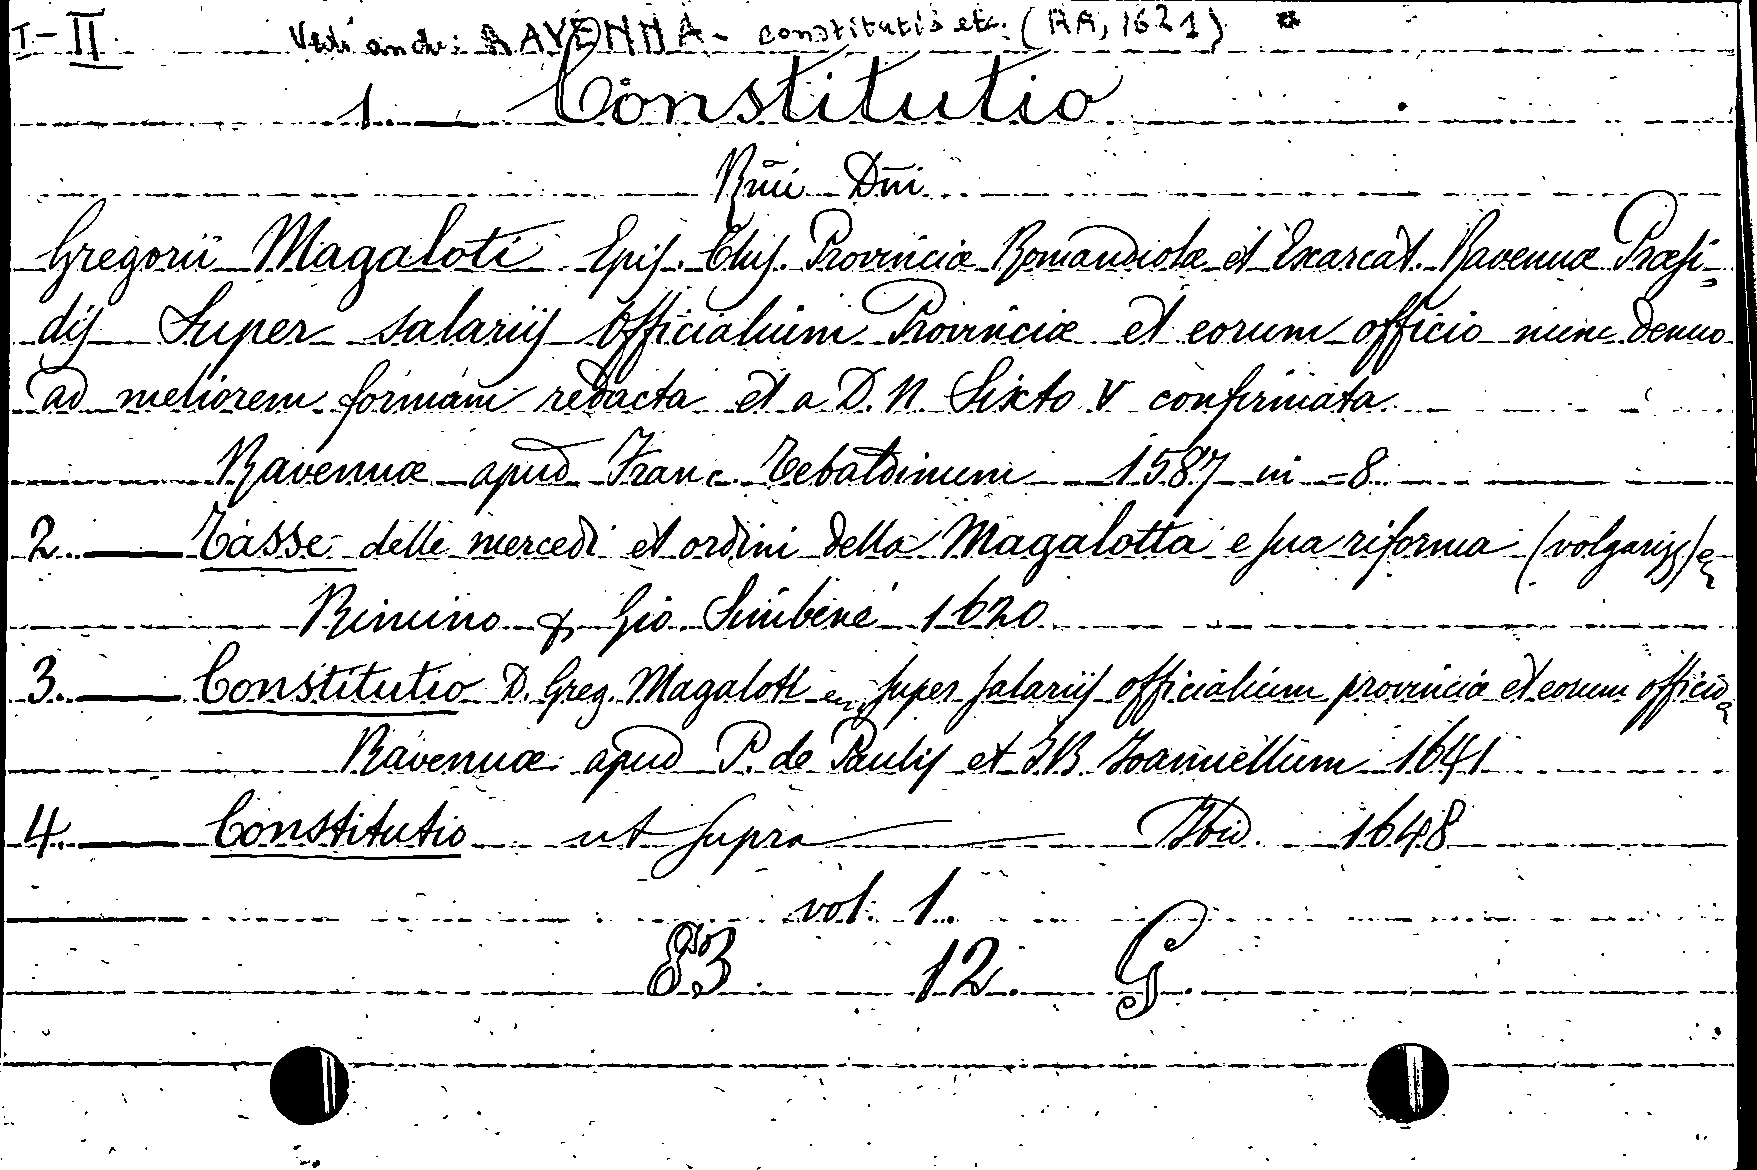 I-II Vedi anche: RAVENNA - constitutio etc. (RA, 1621) *
1. — Constitutio
Rm̄i Dn̄i
Gregorii Magaloti Epis. Clus. Provinciæ Romandiolæ et Exarcat. Ravennæ Præsi=
dis Super salariis Officialium Provinciæ et eorum officio nunc denuo
ad meliorem formam redacta et a D. N. Sixto V confirmata
Ravennæ apud Franc. Tebaldinum 1587 in =8
2. — Tasse delle mercedi et ordini della Magalotta e sua riforma (volgarizz)
Rimino Gio. Simbene 1620
3. — Constitutio D. Greg. Magalotti super salariis officialium provinciæ et eorum officio
Ravennæ apud P. de Paulis et I.B. Ioannellum 1641
4. — Constitutio ut supra — Ibid. 1648
vol. 1.
83. 12. G.